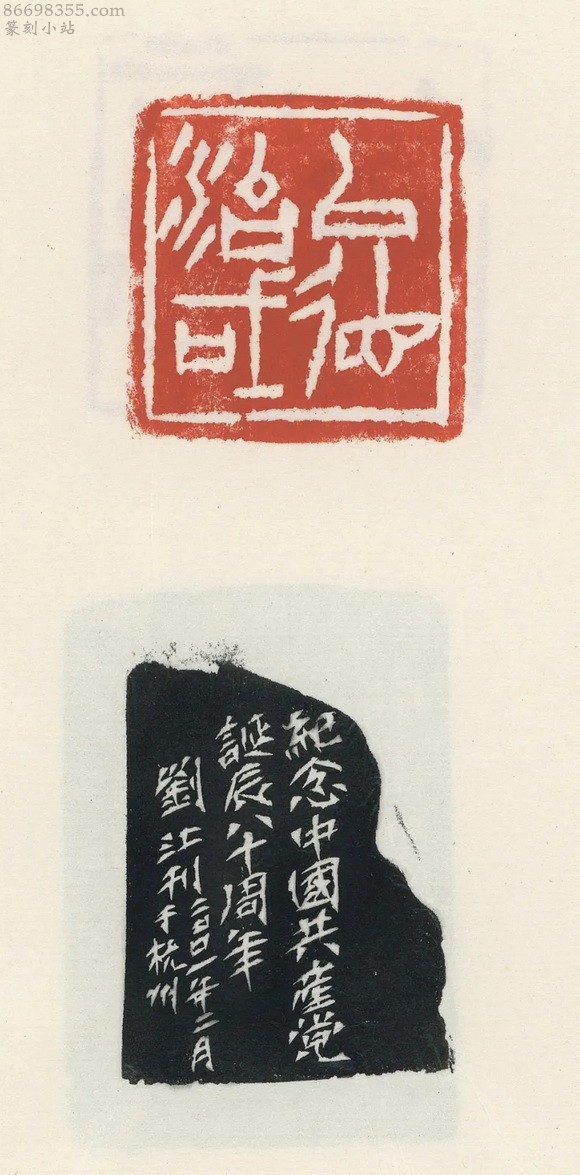 以德治或
紀念中國共産党
誕辰八十周年
劉江刊二〇〇一年二月
于杭州
86698355.com
篆刻小站